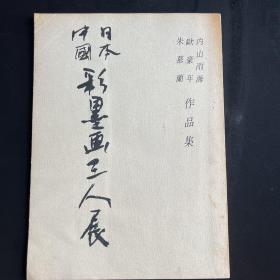 内山雨海
歐豪年
朱慕蘭
作品集
日本
中國
彩墨画三人展